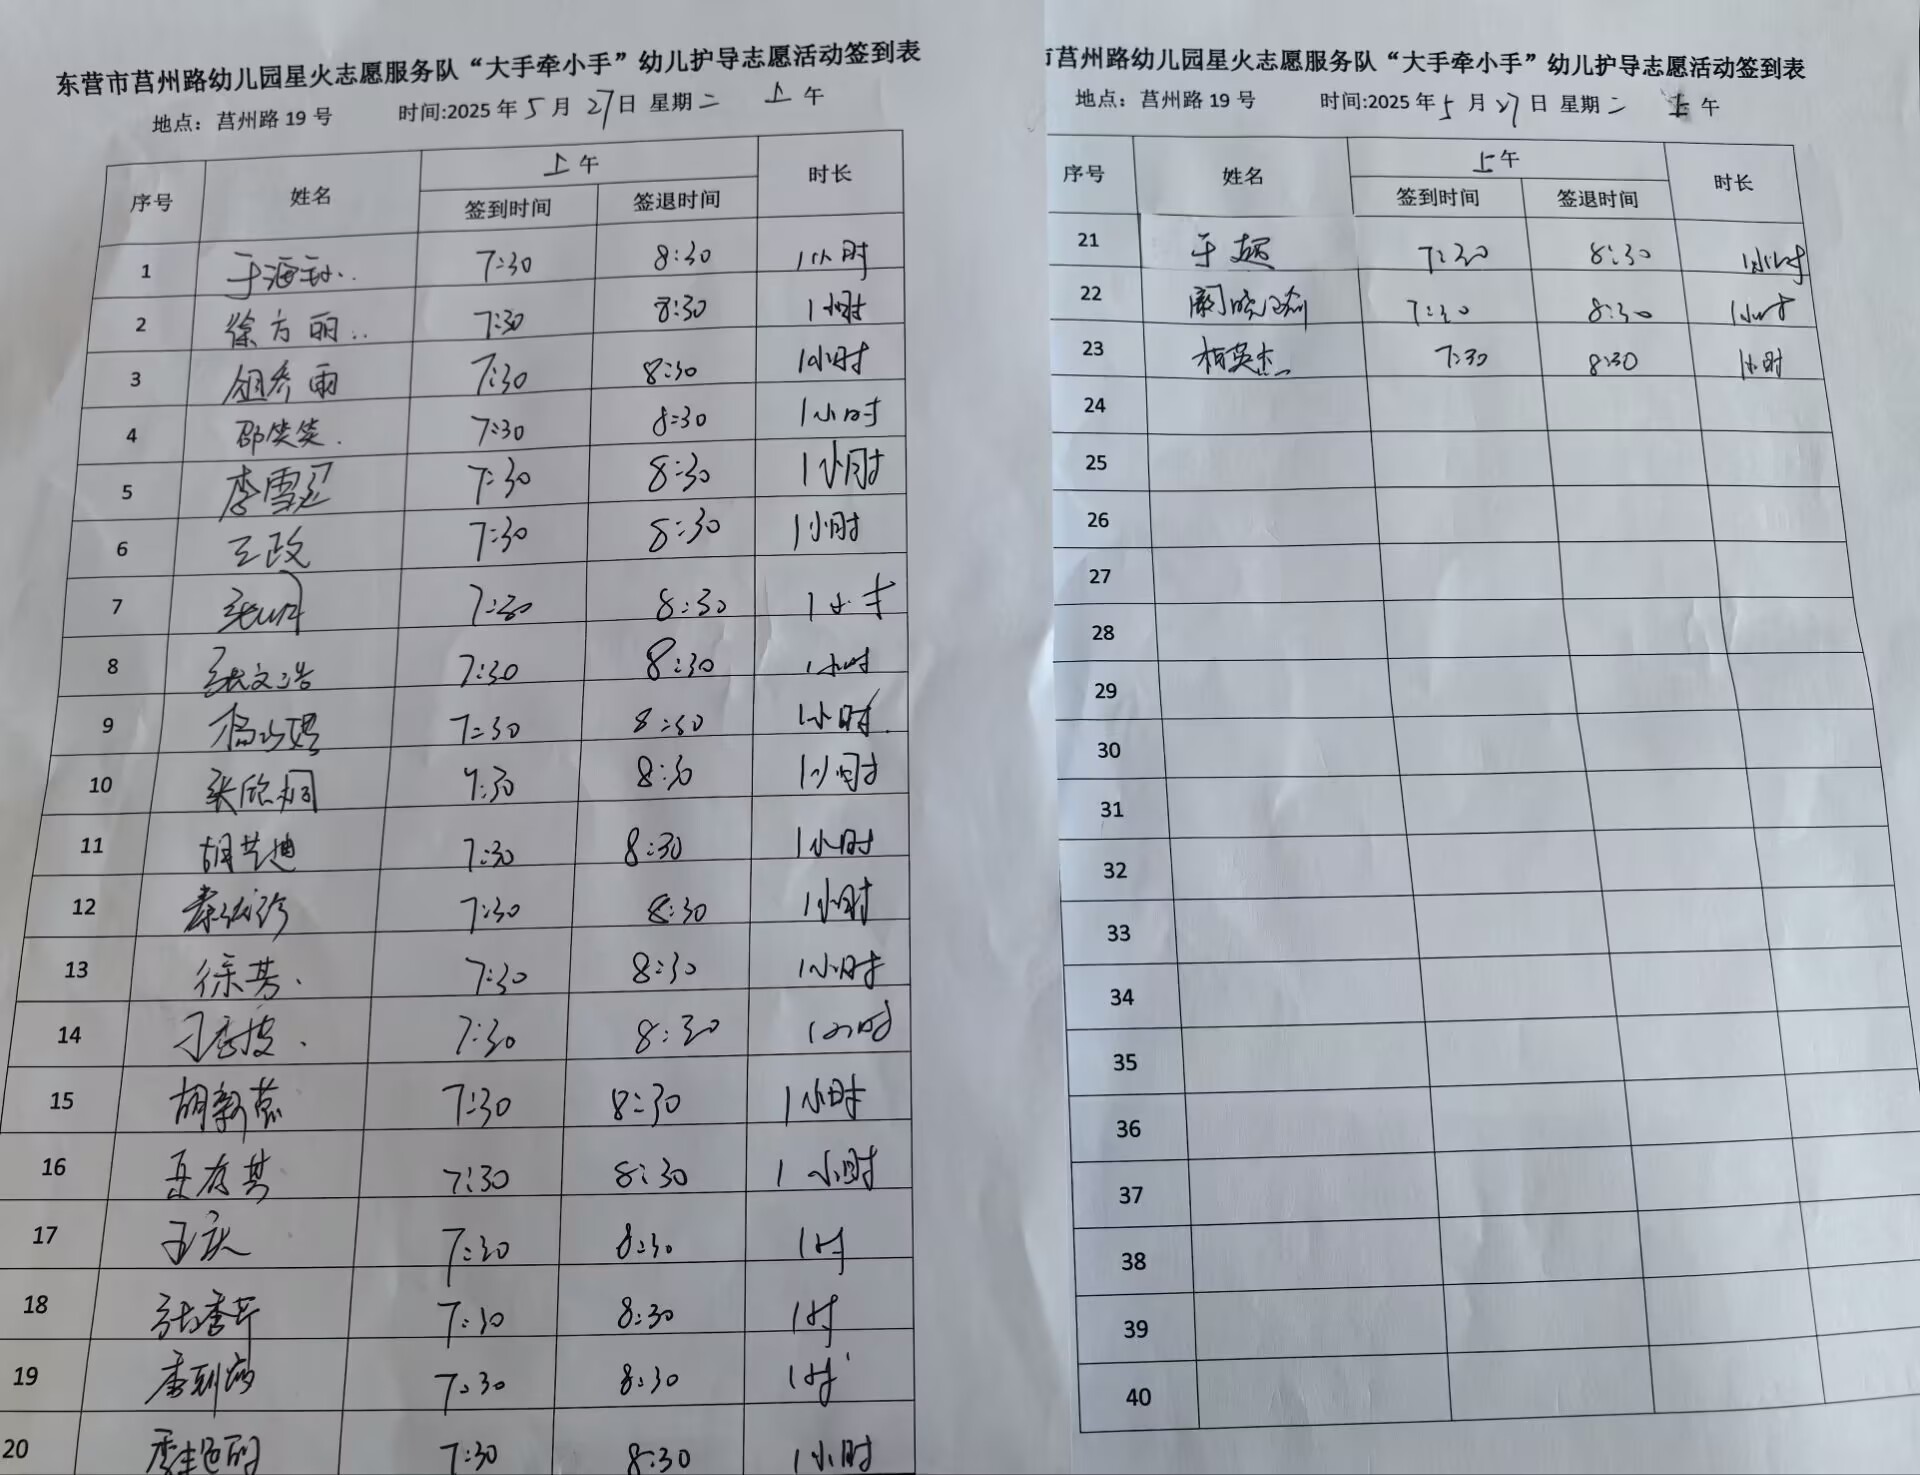 东营市莒州路幼儿园星火志愿服务队“大手牵小手”幼儿护导志愿活动签到表
地点：莒州路 19 号 时间:2025 年 5 月 27 日 星期二 上 午
序号 姓名 上午 时长
签到时间 签退时间
1 于海 7:30 8:30 1小时
2 徐方丽 7:30 8:30 1小时
3 雨 7:30 8:30 1小时
4 邵笑笑. 7:30 8:30 1小时
5 李雪 7:30 8:30 1小时
6 王政 7:30 8:30 1小时
7 7:30 8:30 1小时
8 张文浩 7:30 8:30 1小时
9 杨 7:30 8:30 1小时.
10 张欣桐 7:30 8:30 1小时
11 胡艺迪 7:30 8:30 1小时
12 秦 7:30 8:30 1小时
13 徐芳. 7:30 8:30 1小时
14 7:30 8:30 1小时
15 胡新蕊 7:30 8:30 1小时
16 7:30 8:30 1小时
17 王庆 7:30 8:30 1时
18 张香芹 7:30 8:30 1时
19 李 7:30 8:30 1时
20 7:30 8:30 1小时
市莒州路幼儿园星火志愿服务队“大手牵小手”幼儿护导志愿活动签到表
地点：莒州路 19 号 时间:2025 年 5 月 27 日 星期二 上 午
序号 姓名 上午 时长
签到时间 签退时间
21 于超 7:30 8:30 1小时
22 7:30 8:30 1小时
23 杨英杰 7:30 8:30 1小时
24
25
26
27
28
29
30
31
32
33
34
35
36
37
38
39
40